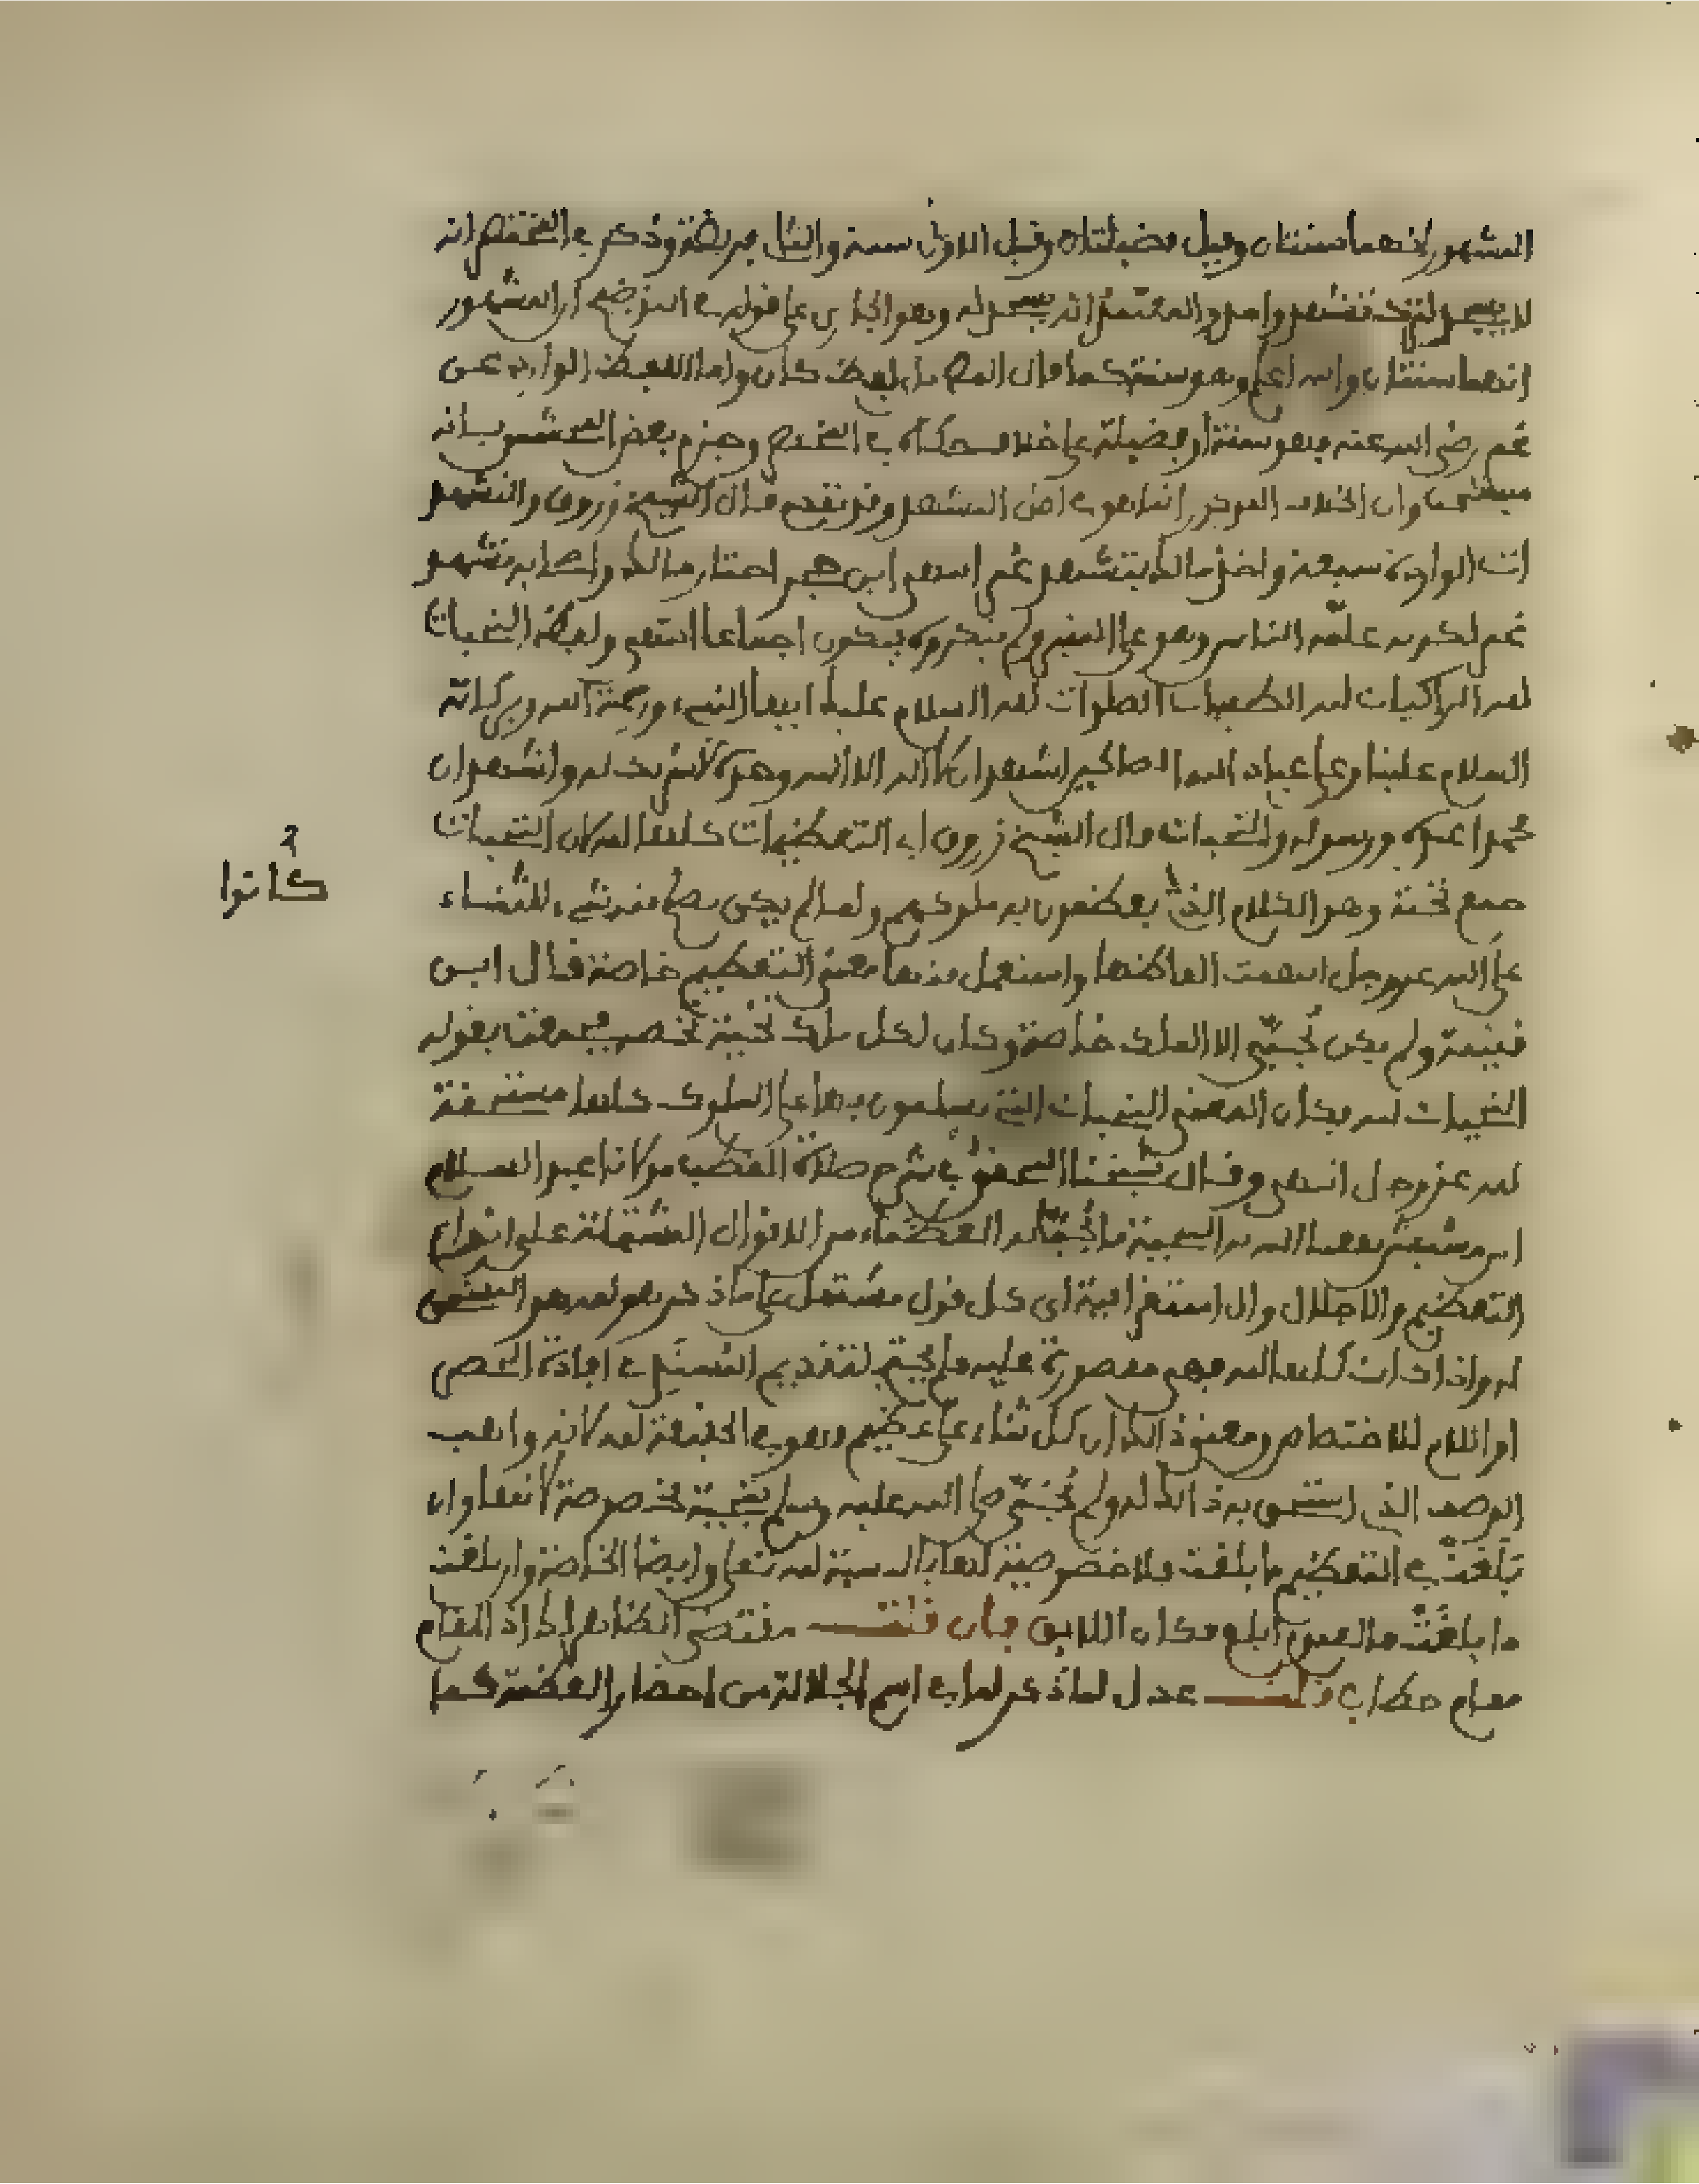 المشهور انهما سنتان وقيل فضيلتان وقيل الاولى سنة والثانى فريضة وذكر في المختصر انه
لا يسجد لترك تشهد واحد والمعتمد انه يسجد له وهو الجاري على قوله في التوضيح ان المشهور
انهما سنتان والله اعلم وهو سنة كما قال المص باي لفظ كان واما اللفظ الوارد عن
عمر رضي الله عنه فهو سنة او فضيلة على خلاف حكاه في المختصر وجزم بعض المحشين بانه
وان الخلاف الموجود انما هو في اصل التشهد وقد تقدم قال الشيخ زروق والتشهد
ات الواردة سبعة واخذ مالك بتشهد عمر انتهى ابن حجر اختار مالك واصحابه تشهد
عمر لكونه علمه الناس وهو على المنبر ولم ينكروه فيكون اجماعا انتهى ولفظه التحيات
لله الزاكيات لله الطيبات الصلوات لله السلام عليك ايها النبيء ورحمة الله وبركاته
السلام علينا وعلى عباد الله الصالحين اشهد ان لا اله الا الله وحده لا شريك له واشهد ان
محمدا عبده ورسوله والتحيات قال الشيخ زروق اي التعظيمات كلها لله لان التحيات
جمع تحية وهو الكلام الذي يعظمون به ملوكهم ولما لم يكن يصلح منه شيء للثناء
كانوا
على الله عز وجل ابهمت الفاظها واستعمل منها معنى التعظيم خاصة قال ابن
قتيبة ولم يكن يحيى الا الملك خاصة وكان لكل ملك تحية تخصه فجمعت بقوله
التحيات لله فكان المعنى التحيات التي يسلمون بها على الملوك كلها مستحقة
لله عز وجل انتهى وقال شيخنا المحقق في شرح صلاة القطب مولانا عبد السلام
ابن مشيش نفعنا الله به التحية ما يحيا به العظماء من الاقوال المشتملة على انواع
التعظيم والاجلال وال استغراقية اي كل قول مشتمل على ما ذكر فهو لله هو المستحق
له واذا كانت كلها لله فهي مقصورة عليه لتقديم المسند في افادة الحصر
او اللام للاختصاص ومعنى ذلك ان كل ثناء على عظيم فهو في الحقيقة لله لانه واهب
الوصف الذي استحق به ذلك ولم يحي صلى الله عليه وسلم بتحية مخصوصة لانها وان
بلغت في التعظيم ما بلغت فلا خصوصية لها بالنسبة لله تعالى وايضا الخاصة وان بلغت
ما بلغت فالعموم ابلغ فكان اللايق فان قلت مقتضى الظاهر اذ المقام
مقام خطاب قلت عدل لما ذكر لما في اسم الجلالة من احضار العظمة كما